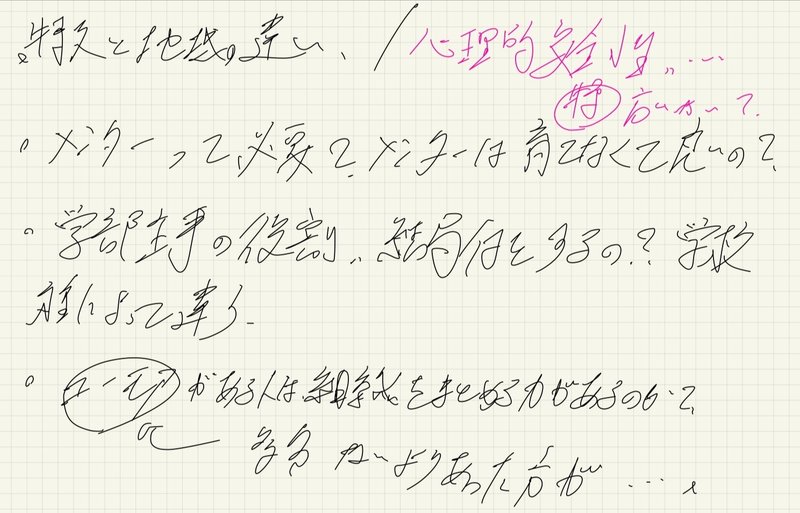 。特支と地域の違い、/ 心理的安全性、…
特 高いかい?
。メンターって必要?メンターは育てなくて良いの?
。学部主事の役割、結局何をするの?学校
によって違う。
。がある人は組織をまとめる力があるのか?
多分ないよりあった方が…。